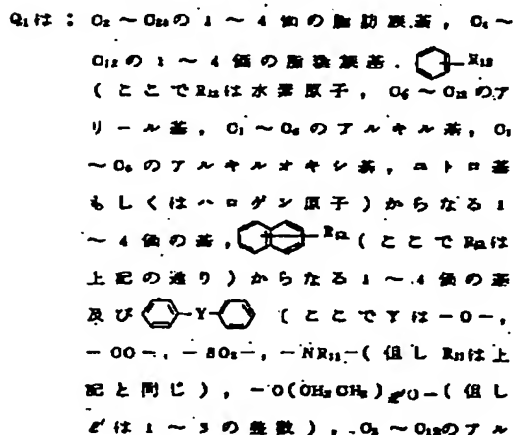 Q₁は：C₂～C₂₄の1～4価の脂肪族基，C₄～
C₁₂の1～4価の脂環族基．-R₁₂
(ここでR₁₂は水素原子，C₆～C₁₂のア
リール基，C₁～C₆のアルキル基，C₁
～C₆のアルキルオキシ基，ニトロ基
もしくはハロゲン原子)からなる1
～4価の基，-R₁₂(ここでR₁₂は
上記の通り)からなる1～4価の基
及び -Y- (ここでYは-O-，
-CO-，-SO₂-，-NR₁₁-(但しR₁₁は上
記と同じ)，-O(CH₂CH₂)ℓ'O-(但し
ℓ'は1～3の整数)，C₂～C₁₂のアル